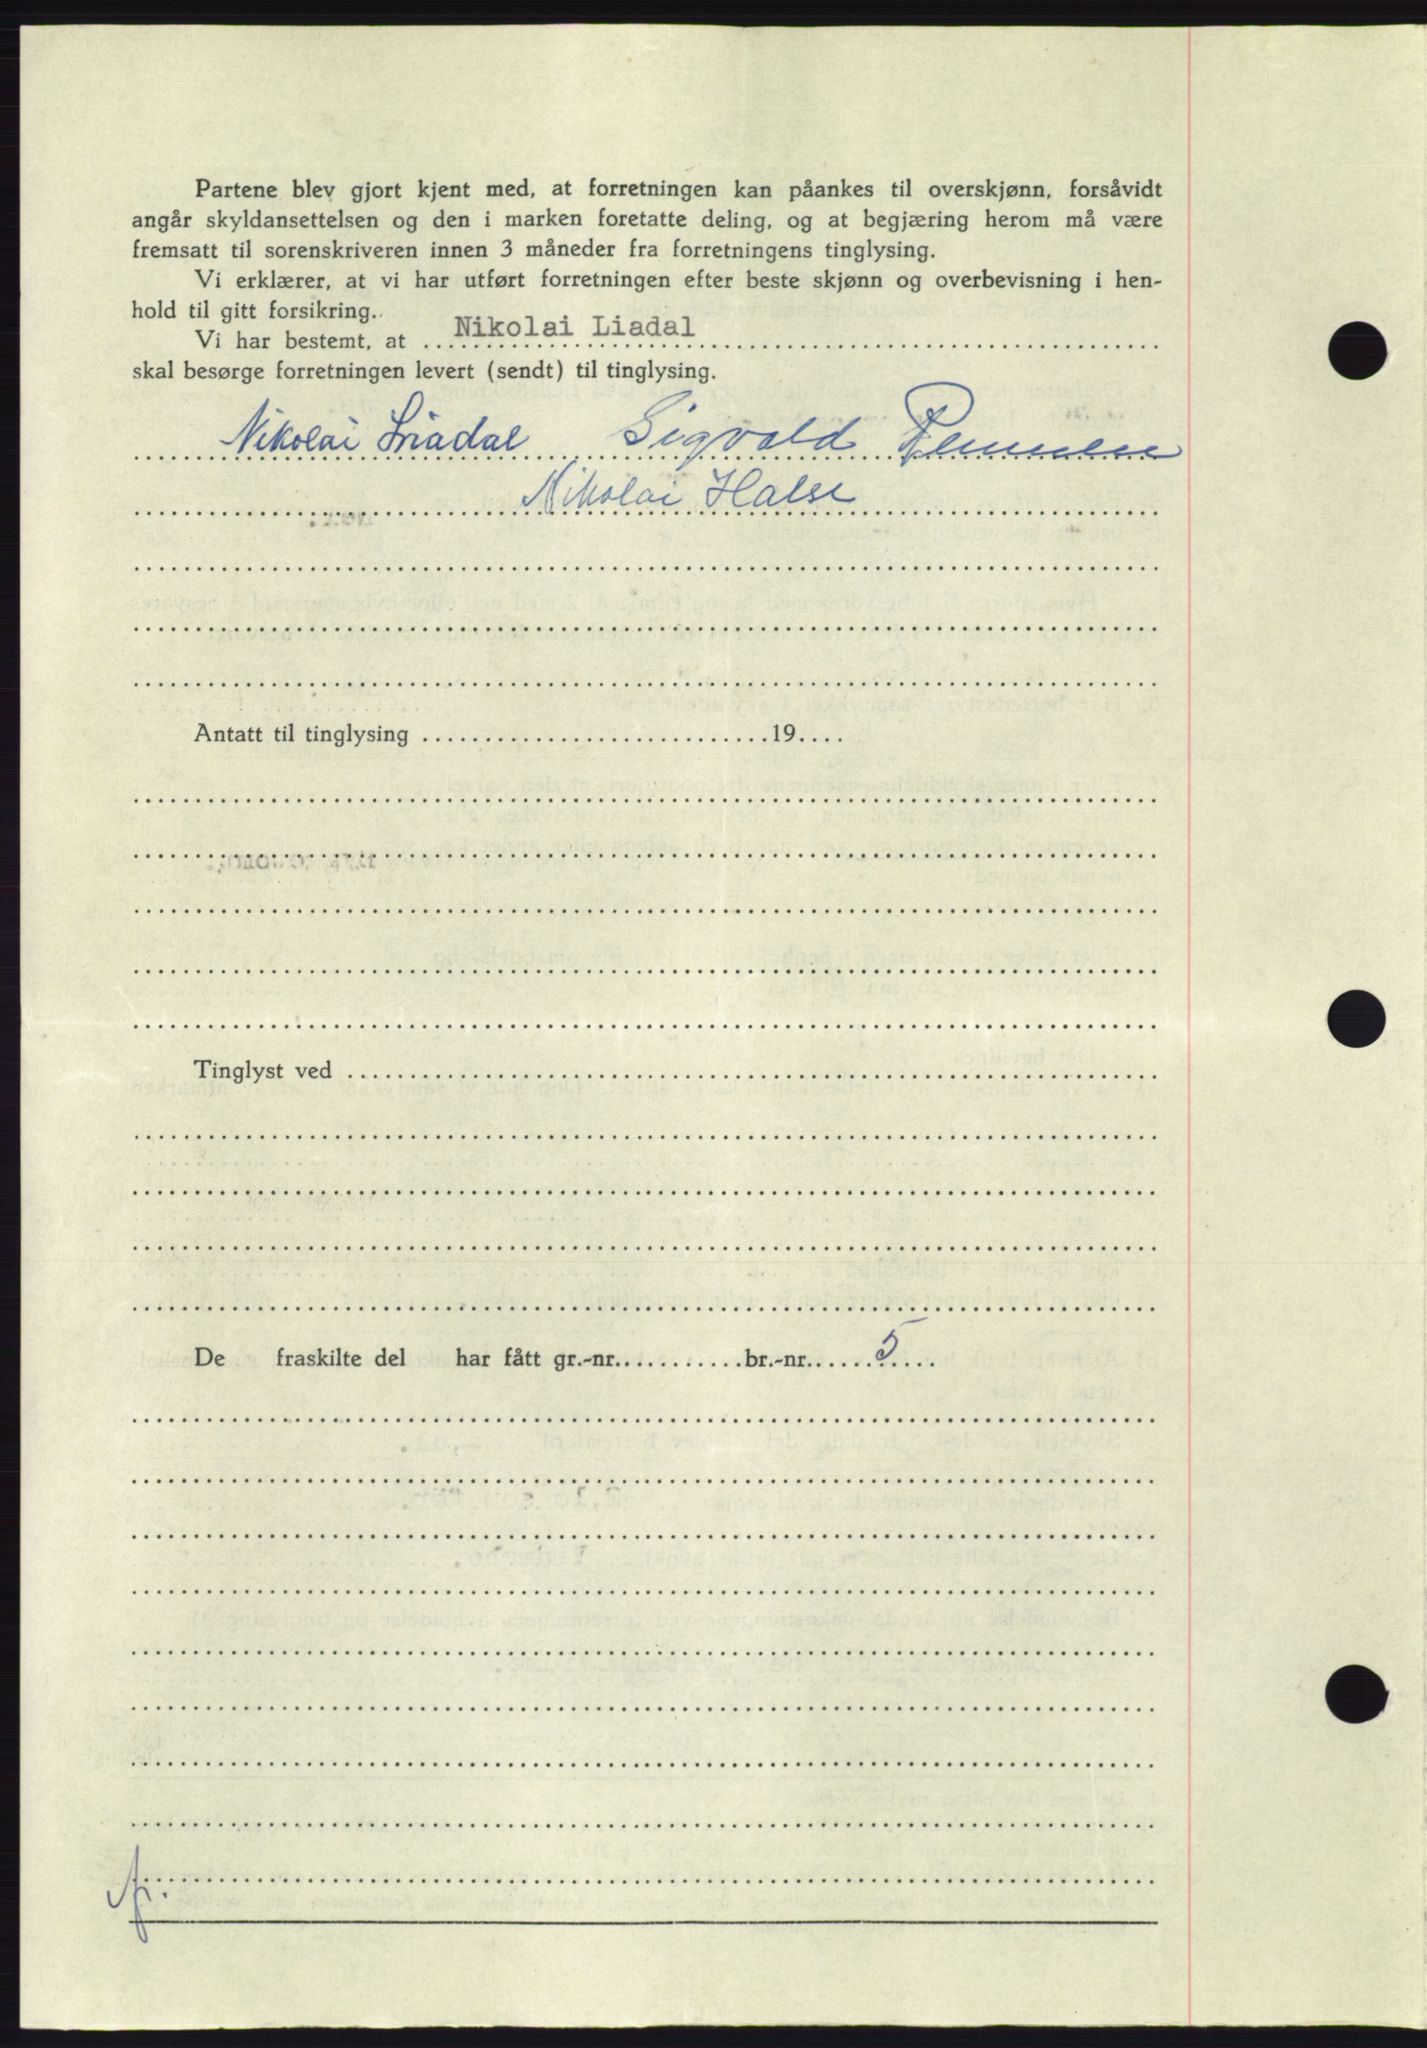 Partene blev gjort kjent med, at forretningen kan påankes til overskjønn, forsåvidt
angår skyldansettelsen og den i marken foretatte deling, og at begjæring herom må være
fremsatt til sorenskriveren innen 3 måneder fra forretningens tinglysing.
Vi erklærer, at vi har utført forretningen efter beste skjønn og overbevisning i hen-
hold til gitt forsikring.
Vi har bestemt, at Nikolai Liadal
skal besørge forretningen levert (sendt) til tinglysing.
Nikolai Liadal Sigvald
Nikolai Halse
Antatt til tinglysing 19
Tinglyst ved
De fraskilte del har fått gr.-nr. br.-nr. 5